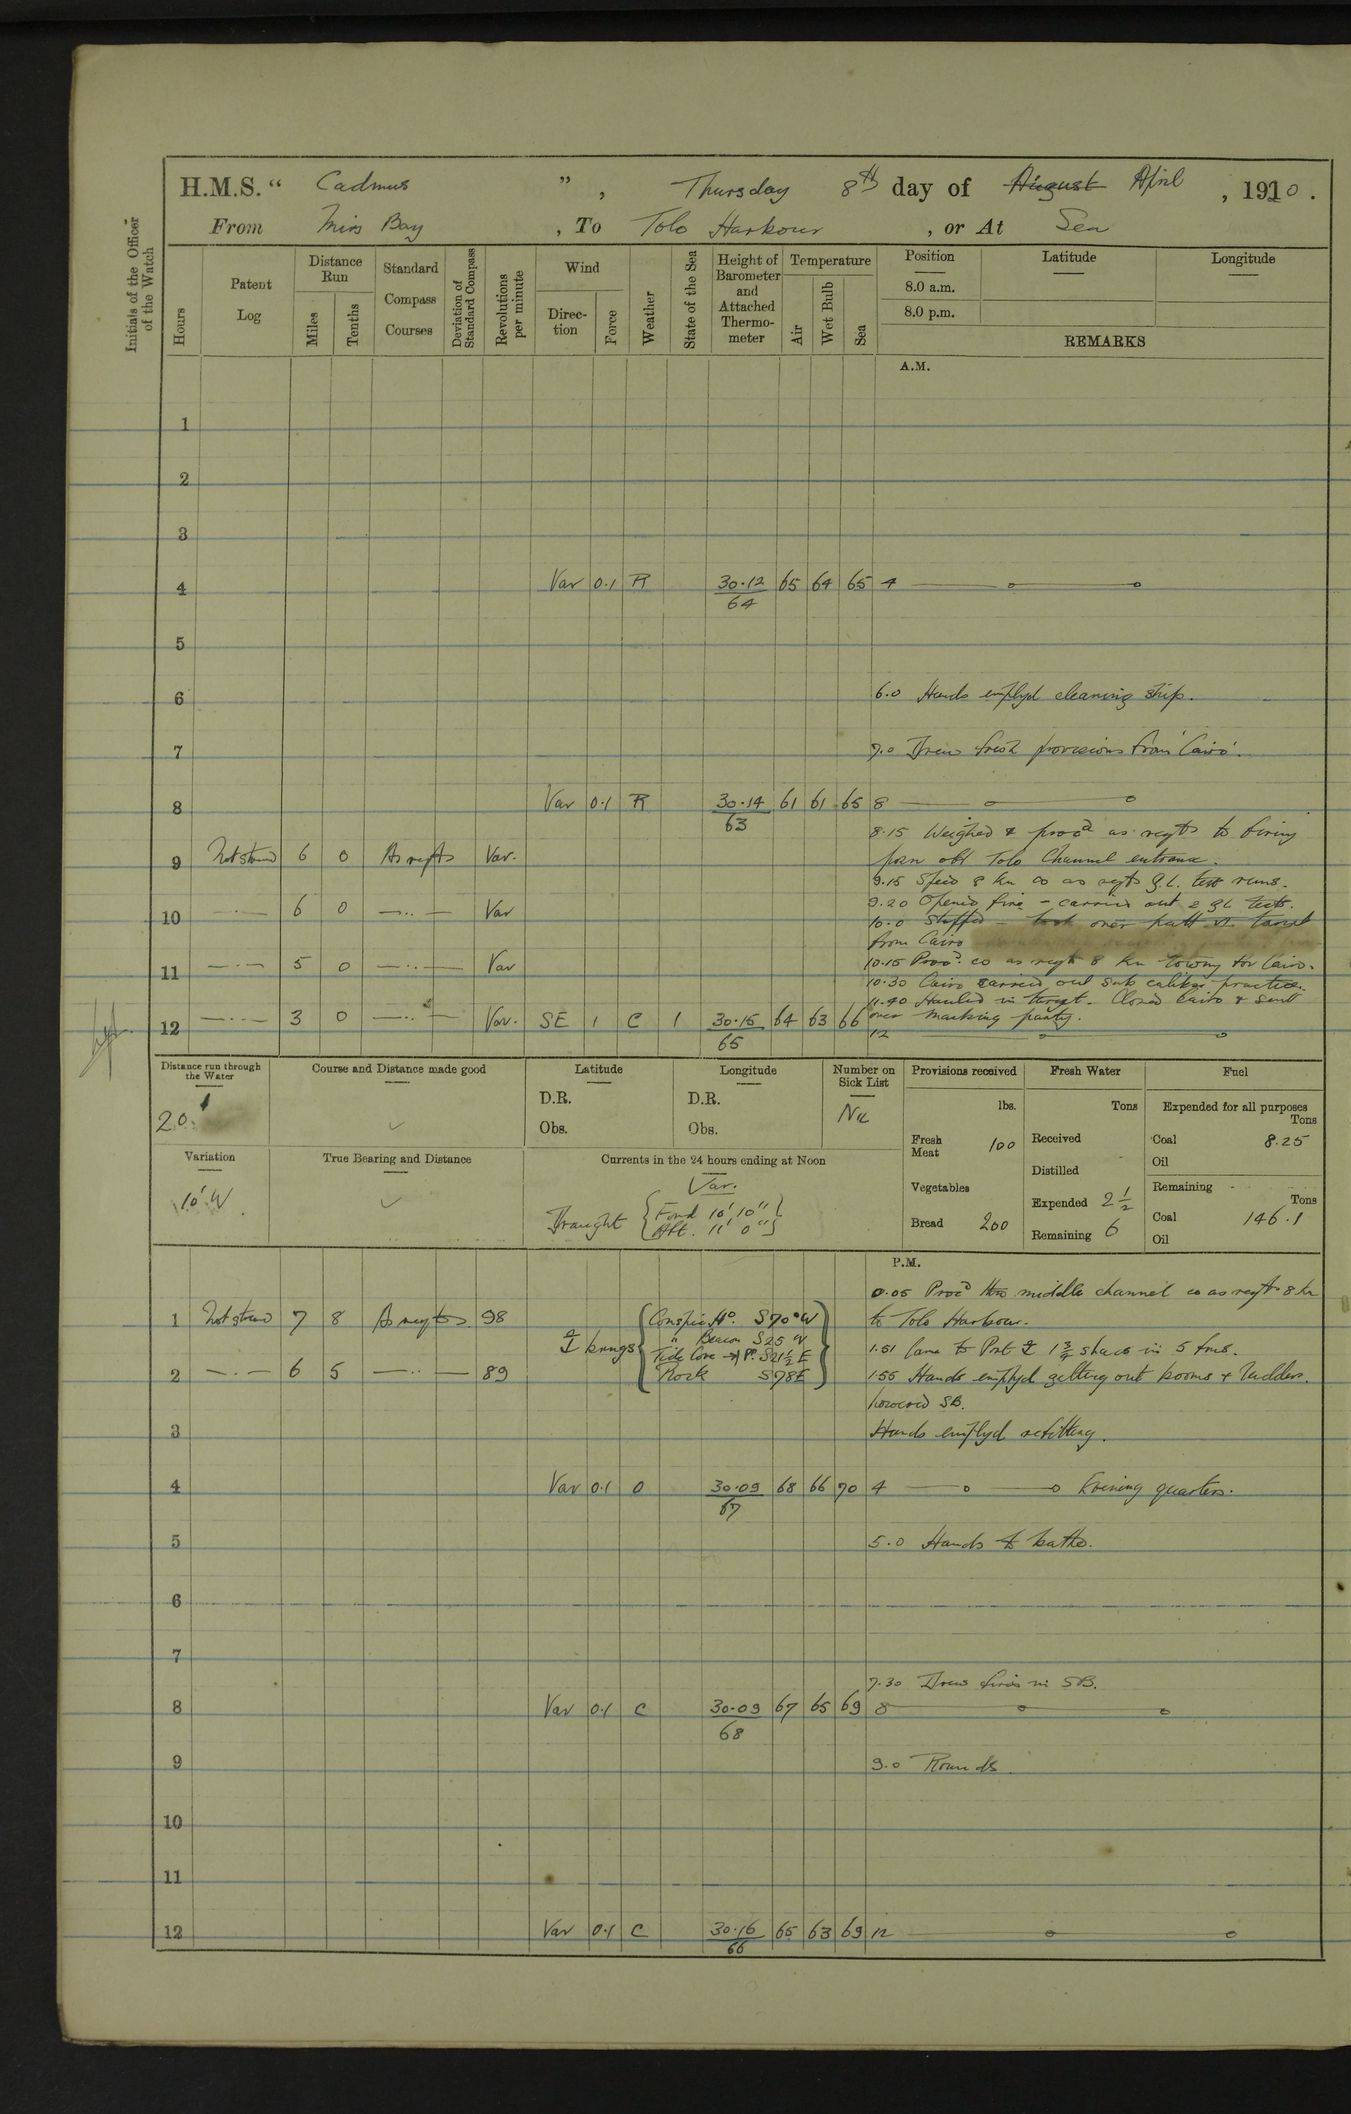 H.M.S. “ Cadmus ” , Thursday 8th day of August April , 1920 .
From Mirs Bay , To Tolo Harbour , or At Sea
Initials of the Officer of the Watch
Hours
Patent Log
Distance Run
Miles
Tenths
Standard Compass Courses
Deviation of Standard Compass
Revolutions per minute
Wind
Direction
Force
Weather
State of the Sea
Height of Barometer and Attached Thermometer
Temperature
Air
Wet Bulb
Sea
Position
8.0 a.m.
8.0 p.m.
Latitude
Longitude
REMARKS
A.M.
1
2
3
4 Var 0.1 R 30.12 65 64 65 4
64
5
6 6.0 Hands emplyd cleaning ship.
7 7.0 Drew fresh provisions from 'Cairo'.
8 Var 0.1 R 30.14 61 61 65 8
63
8.15 Weighed & procd as reqts to firing
9 Not strmd 6 0 As reqts Var. posn off Tolo Channel entrance.
9.15 Speed 8 kn co as reqts G.L. test runs.
9.20 Opened fire – carried out 2 GL tests.
10 — · — 6 0 — ·· — Var 10.0 Stopped – took over patt VI target
from Cairo
11 — · — 5 0 — ·· — Var 10.15 Procd. co as reqt 8 kn towing for Cairo.
10.30 Cairo carried out sub calibre practice.
11.40 Hauled in target. Closed Cairo & sent
12 — · — 3 0 — ·· — Var. SE 1 C 1 30.15 64 63 66 over marking party.
65 12
Distance run through the Water
20.
Course and Distance made good
Latitude
D.R.
Obs.
Longitude
D.R.
Obs.
Number on Sick List
Nil
Provisions received
lbs.
Fresh Meat 100
Vegetables
Bread 200
Fresh Water
Tons
Received
Distilled
Expended 2½
Remaining 6
Fuel
Expended for all purposes
Tons
Coal 8.25
Oil
Remaining
Tons
Coal 146.1
Oil
Variation
10' W
True Bearing and Distance
Currents in the 24 hours ending at Noon
Var.
Draught { Ford 10' 10" }
{ Aft. 11' 0" }
P.M.
0.05 Procd thro middle channel co as reqts 8 kn
1 Not strmd 7 8 As reqts 98 Conspic Ho. S70°W to Tolo Harbour.
brngs " Beacon S25 W 1.51 Came to Port 1¾ shacs in 5 fms.
Tide Cove → P. S21½E
2 — · — 6 5 — ·· — 89 Rock S78E 1.55 Hands emplyd getting out booms & ladders.
Lowered SB.
3 Hands emplyd refitting.
4 Var 0.1 O 30.09 68 66 70 4 Evening quarters.
67
5 5.0 Hands to bathe.
6
7
7.30 Drew fires in SB.
8 Var 0.1 C 30.09 67 65 69 8
68
9 9.0 Rounds.
10
11
12 Var 0.1 C 30.16 65 63 69 12
66